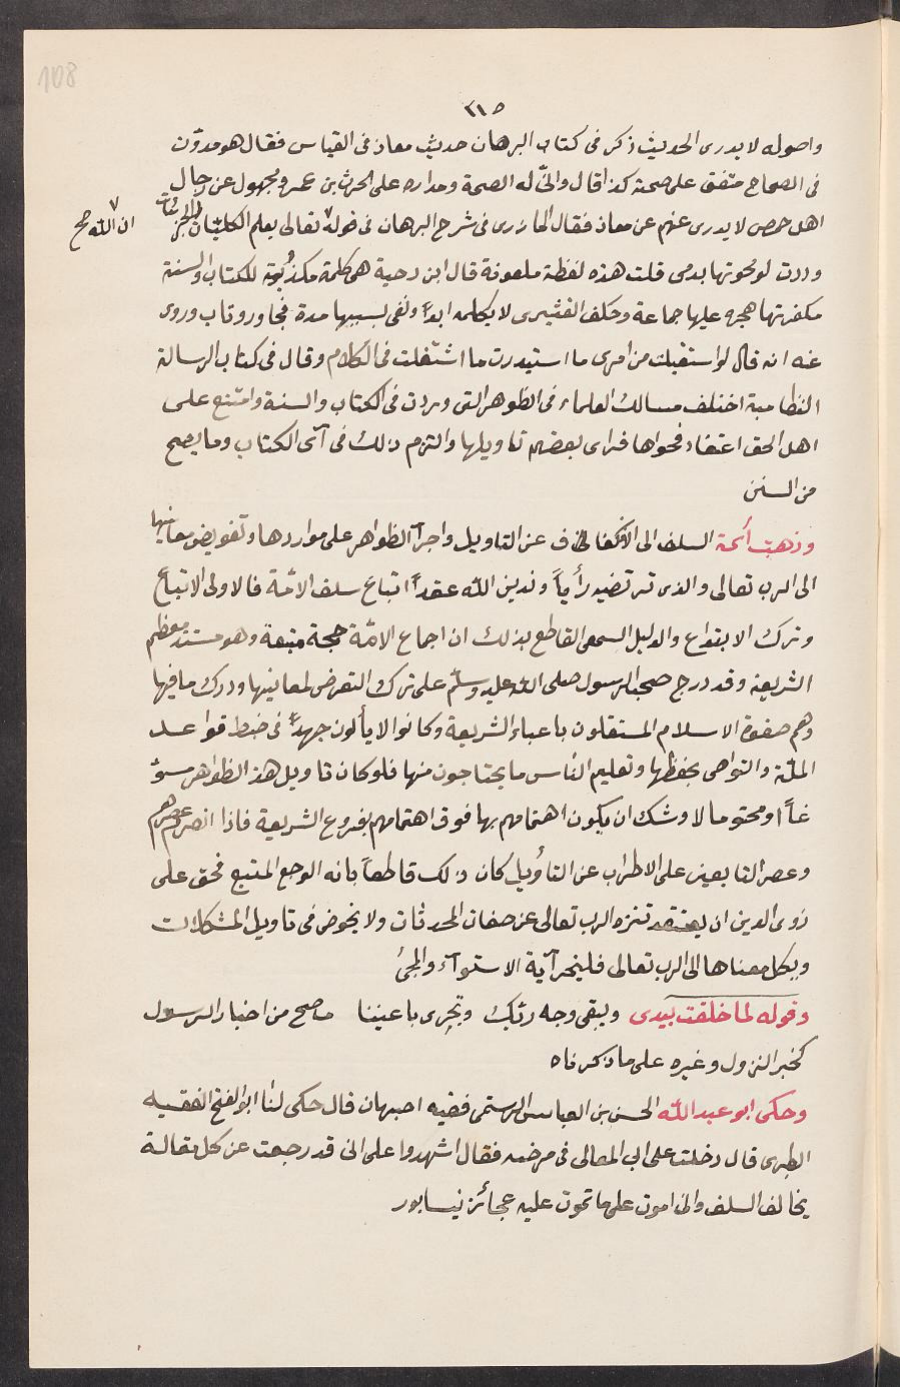 108
٣١٥
واصوله لا يدرى الحديث ذكر فى كتاب البرهان حديث معاذ فى القياس فقال هو مدوّن
فى الصحاح متفق على صحة كذا قال وانّى له الصحة ومداره على الحرث بن عمرو مجهول عن رجال
اهل حمص لا يدرى عنهم عن معاذ فقال المازرى فى شرح البرهان فى قوله تعالى يعلم الكليّات لا الجزئيّات
ان الله صح
وددت لو محوتها بدمى قلت هذه لفظة ملعونة قال ابن دحية هى كلمة مكذّبة للكتاب والسنة
مكفر بها هجره عليها جماعة وحلف القشيرى لا يكلمه ابداً ونفى بسببها مدة فجاور وتاب وروى
عنه انه قال لو استقبلت من امرى ما استدبرت ما اشتغلت فى الكلام وقال فى كتاب الرسالة
النظامية اختلف مسالك العلماء فى الظوهر التى وردت فى الكتاب والسنة وامتنع على
اهل الحق اعتقاد فحواها فراى بعضهم تاويلها والتزم ذلك فى آى الكتاب وما يصح
من السنن
وذهبت أئمة السلف الى الانكفاف عن التاويل واجرآ الظواهر على مواردها وتفويض معانيها
الى الرب تعالى والذى نرتضيه رأياً وندين الله عقداً اتباع سلف الامّة فالاولى الاتباع
وترك الابتداع والدليل السمعى القاطع بذلك ان اجماع الامّة حجة متبعة وهو مستند معظم
الشريعة وقد درج صحب الرسول صلى الله عليه وسلّم على ترك التعرض لمعانيها ودرك ما فيها
وهم صفوة الاسلام المستقلون باعباء الشريعة وكانوا لا يألون جهداً فى ضبط قواعد
الملّة والتواصى بحفظها وتعليم الناس ما يحتاجون منها فلو كان تاويل هذ الظواهر مسوّ
غاً او محتوما لاوشك ان يكون اهتمامهم بها فوق اهتمامهم بفروع الشريعة فاذا انصرم عصرهم
وعصر التابعين على الاضراب عن التاويل كان ذلك قاطعاً بانه الوجه المتبع فحق على
ذوى الدين ان يعتقد تنزه الرب تعالى عن صفات المحدثات ولا يخوض فى تاويل المشكلات
ويكل معناها الى الرب تعالى فليجر آية الاستوآء والمجئ
وقوله لما خلقت بيدى ويبقى وجه ربّك وتجرى باعيننا ما صح من اخبار الرسول
كخبر النزول وغيره على ما ذكرناه
وحكى ابو عبد الله الحسن بن العباس الرستمى فقيه اصبهان قال حكى لنا ابو الفتح الفقيه
الطبرى قال دخلت على ابى المعالى فى مرضه فقال اشهدوا على انى قد رجعت عن كل مقالة
يخالف السلف وانى اموت على ما تموت عليه عجائز نيسابور